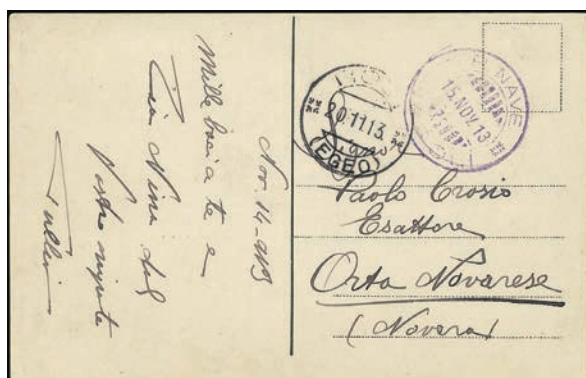 Nov. 14-913
Mille baci a te e
Zia Nina dal
Vostro nipote
NAVE
15.NOV.13
20.11.13.
(EGEO)
Paolo Crosio
Esattore
Orta Novarese
(Novara)